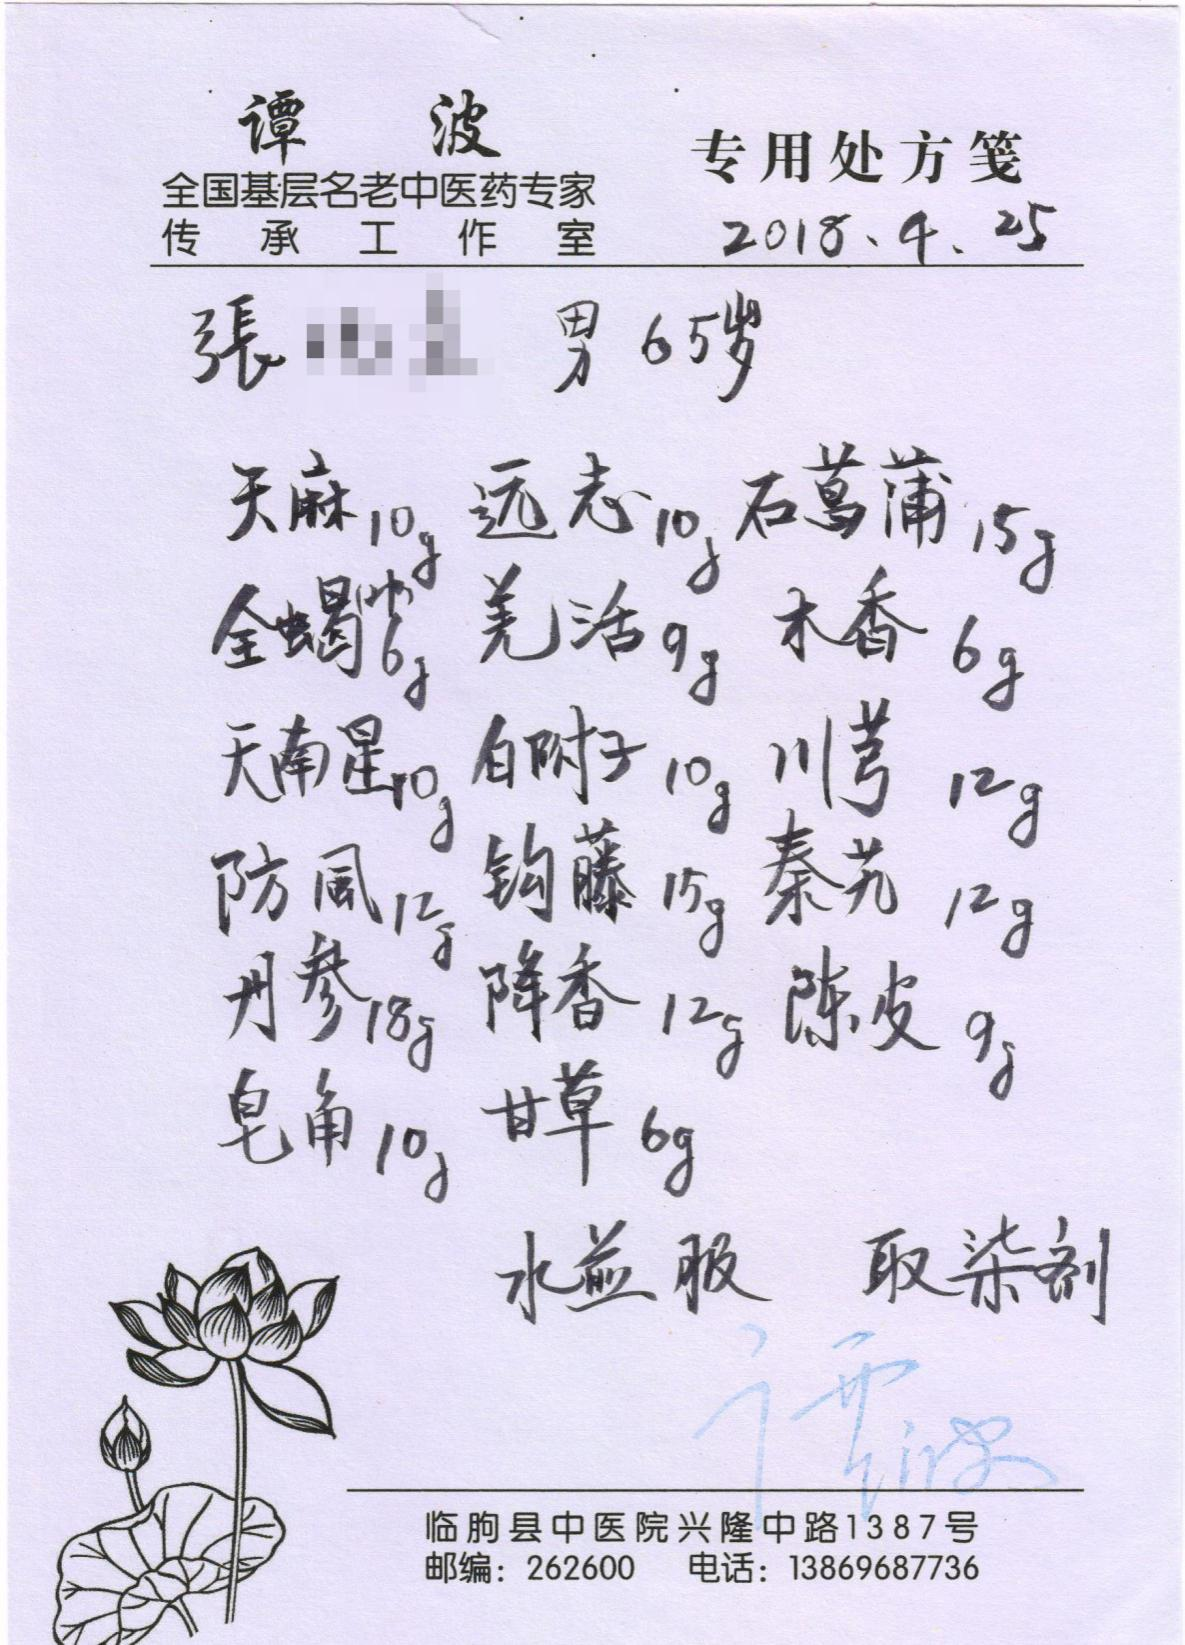 谭 波 专用处方笺
全国基层名老中医药专家
传承工作室 2018.4.25
張 男 65岁
天麻10g 远志10g 石菖蒲15g
全蝎6g 羌活9g 木香6g
天南星10g 白附子10g 川芎12g
防風12g 钩藤15g 秦艽12g
丹参18g 降香12g 陈皮9g
皂角10g 甘草6g
水煎服 取柒剂
谭波
临朐县中医院兴隆中路1387号
邮编：262600 电话：13869687736